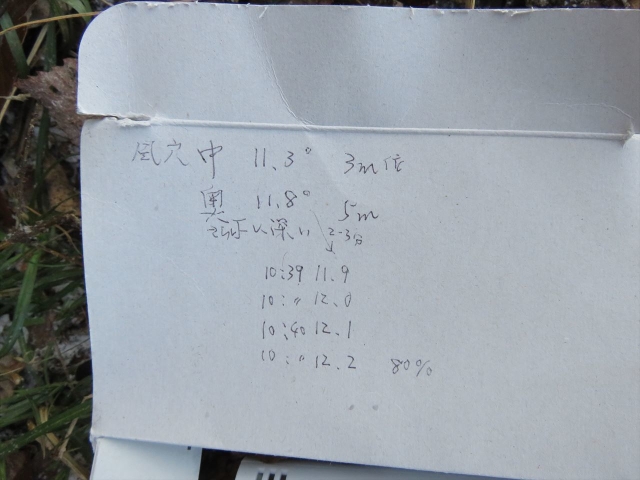 風穴 中 11.3° 3m位
奥 11.8° 5m
深い 2-3分
10:39 11.9
10:〃 12.0
10:40 12.1
10:〃 12.2 80%